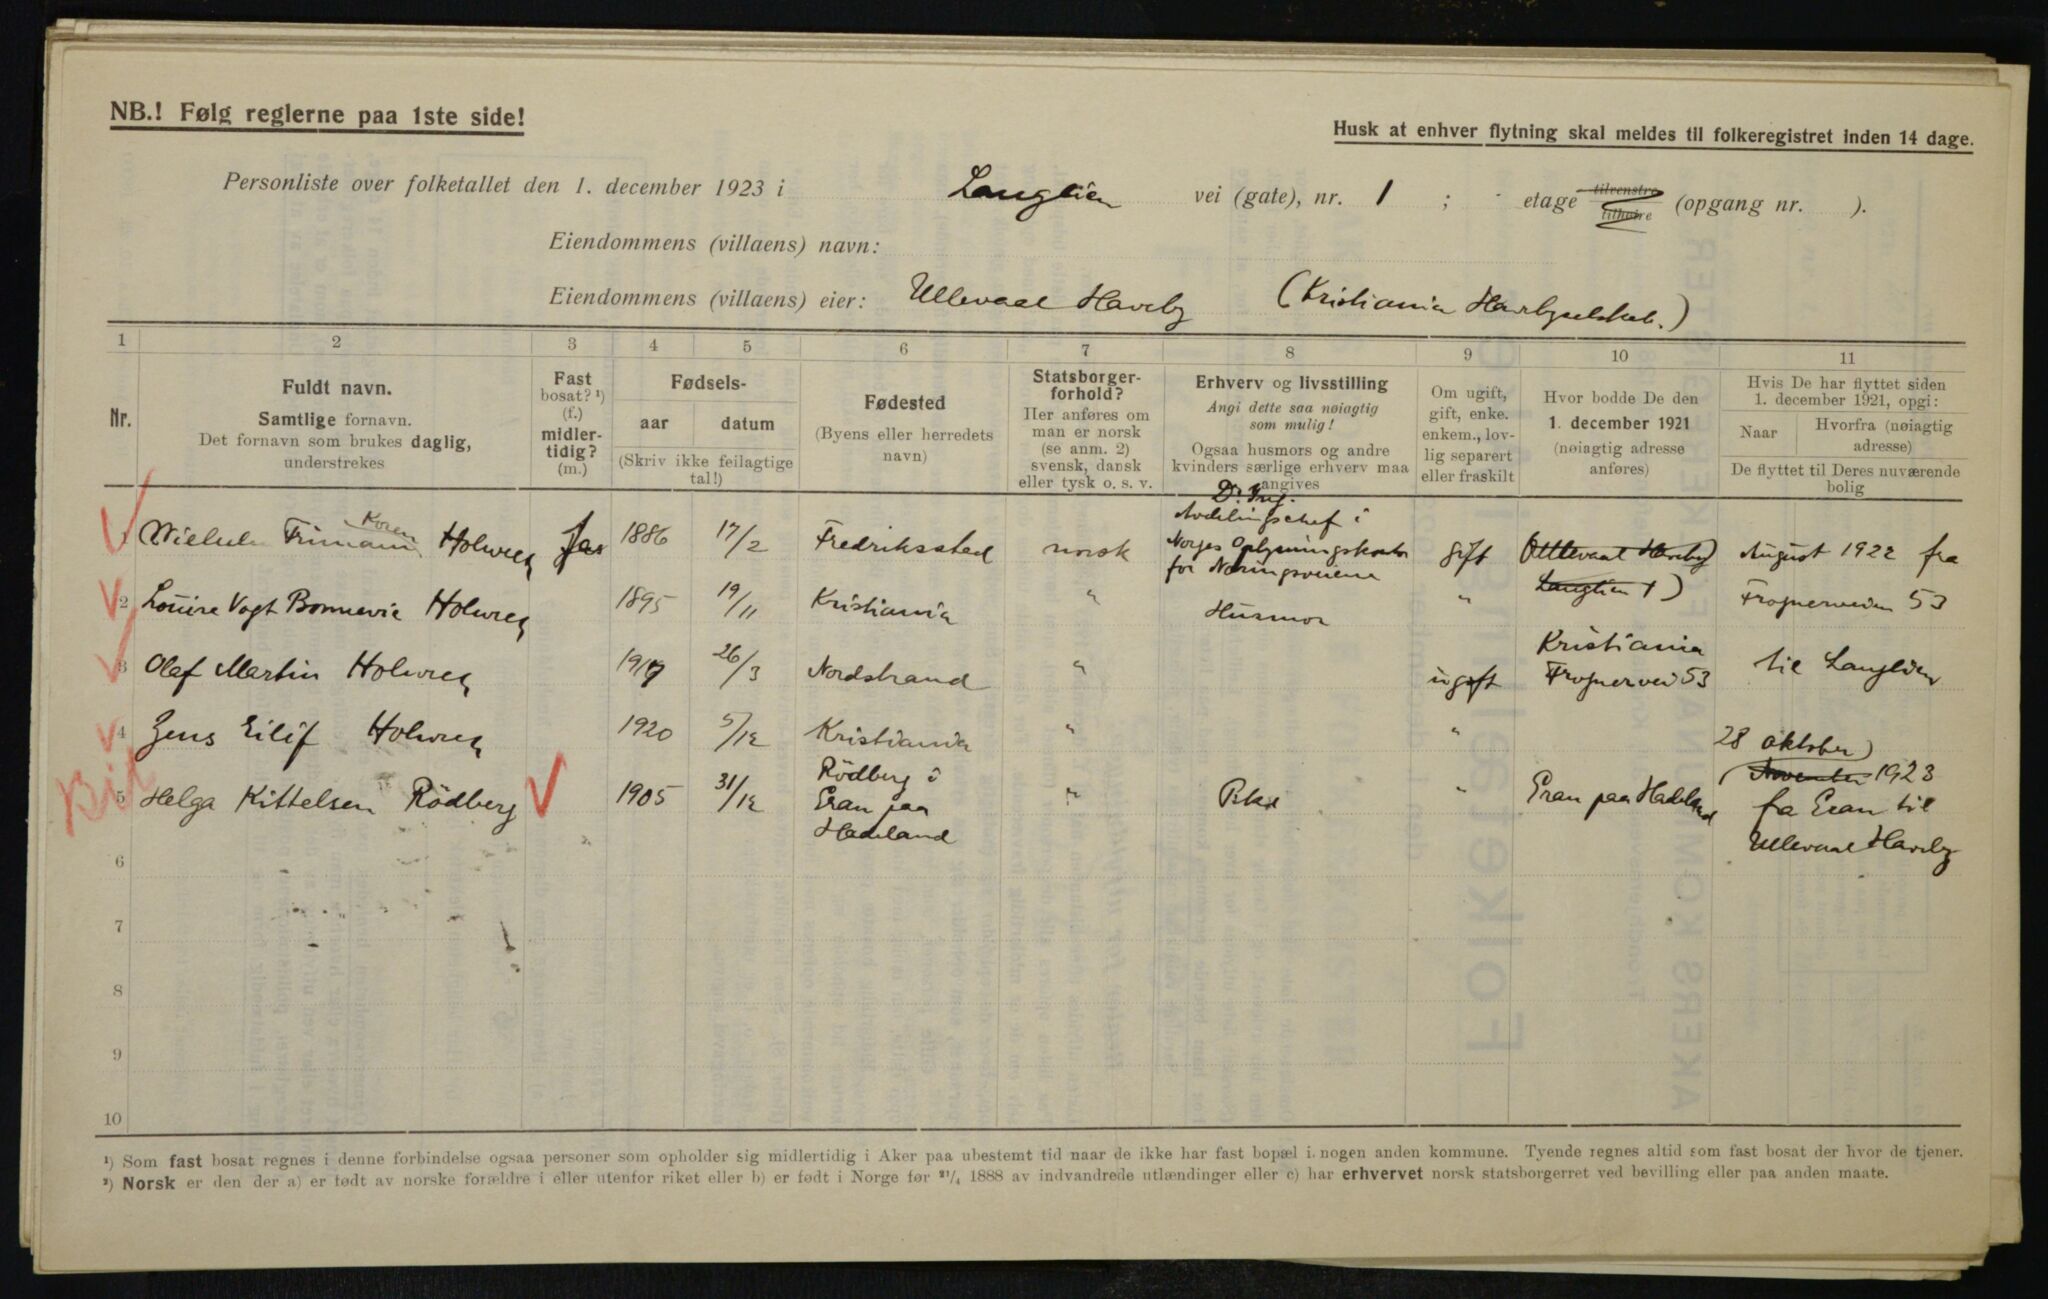 NB.! Følg reglerne paa 1ste side!
Husk at enhver flytning skal meldes til folkeregistret inden 14 dage.
Personliste over folketallet den 1. december 1923 i Langlien vei (gate), nr. 1 ; etage tilvenstre tilhøire (opgang nr. ).
Eiendommens (villaens) navn:
Eiendommens (villaens) eier: Ullevaal Haveby (Kristiania Havebyselskab.)
1 2 3 4 5 6 7 8 9 10 11
Nr.
Fuldt navn.
Samtlige fornavn.
Det fornavn som brukes daglig,
understrekes
Fast
bosat? ¹)
(f.)
midler-
tidig?
(m.)
Fødsels-
aar datum
(Skriv ikke feilagtige
tal!)
Fødested
(Byens eller herredets
navn)
Statsborger-
forhold?
Her anføres om
man er norsk
(se anm. 2)
svensk, dansk
eller tysk o. s. v.
Erhverv og livsstilling
Angi dette saa nøiagtig
som mulig!
Ogsaa husmors og andre
kvinders særlige erhverv maa
angives
Om ugift,
gift, enke.
enkem., lov-
lig separert
eller fraskilt
Hvor bodde De den
1. december 1921
(nøiagtig adresse
anføres)
Hvis De har flyttet siden
1. december 1921, opgi:
Naar Hvorfra (nøiagtig
adresse)
De flyttet til Deres nuværende
bolig
Koren
1 Wilhelm Frimann Holwech Ja 1886 17/2 Fredriksstad norsk
Dr. Ing.
Avdelingschef i
Norges Oplysningskontor
for Næringsveiene
gift (Ullevaal Haveby
Langlien 1)
August 1922 fra
2 Louise Vogt Bonnevie Holwech 1895 19/11 Kristiania " Husmor " Frognerveien 53
3 Olaf Martin Holwech 1917 26/3 Nordstrand " ugift
Kristiania
Frognervei 53
til Langlien
4 Jens Eilif Holwech 1920 5/12 Kristiania " "
5 Helga Kittelsen Rödberg 1905 31/12
Rödberg i
Gran paa
Hadeland
" Pike " Gran paa Hadeland
28 oktober)
(November 1923
fra Gran til
Ullevaal Haveby
6
7
8
9
10
¹) Som fast bosat regnes i denne forbindelse ogsaa personer som opholder sig midlertidig i Aker paa ubestemt tid naar de ikke har fast bopæl i nogen anden kommune. Tyende regnes altid som fast bosat der hvor de tjener.
²) Norsk er den der a) er født av norske forældre i eller utenfor riket eller b) er født i Norge før 21/4 1888 av indvandrede utlændinger eller c) har erhvervet norsk statsborgerret ved bevilling eller paa anden maate.